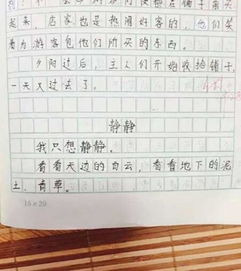 起来,店家也是热情好客的,他们笑
着为游客包他们所买的东西。
夕阳过后,主人们开始收拾铺子,
一天又过去了。
静静
我只想静静。
看看天边的白云,看看地下的泥
土、青草。
15×20